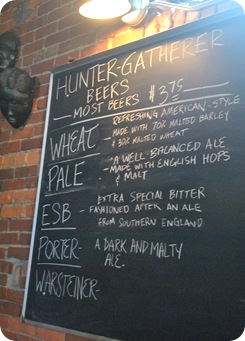 HUNTER-GATHERER
BEERS
MOST BEERS $3.75
WHEAT - REFRESHING AMERICAN-STYLE
MADE WITH 70% MALTED BARLEY
& 30% MALTED WHEAT
PALE - A WELL BALANCED ALE
MADE WITH ENGLISH HOPS
& MALT
ESB - EXTRA SPECIAL BITTER
FASHIONED AFTER AN ALE
FROM SOUTHERN ENGLAND
PORTER- A DARK AND MALTY
ALE.
WARSTEINER-